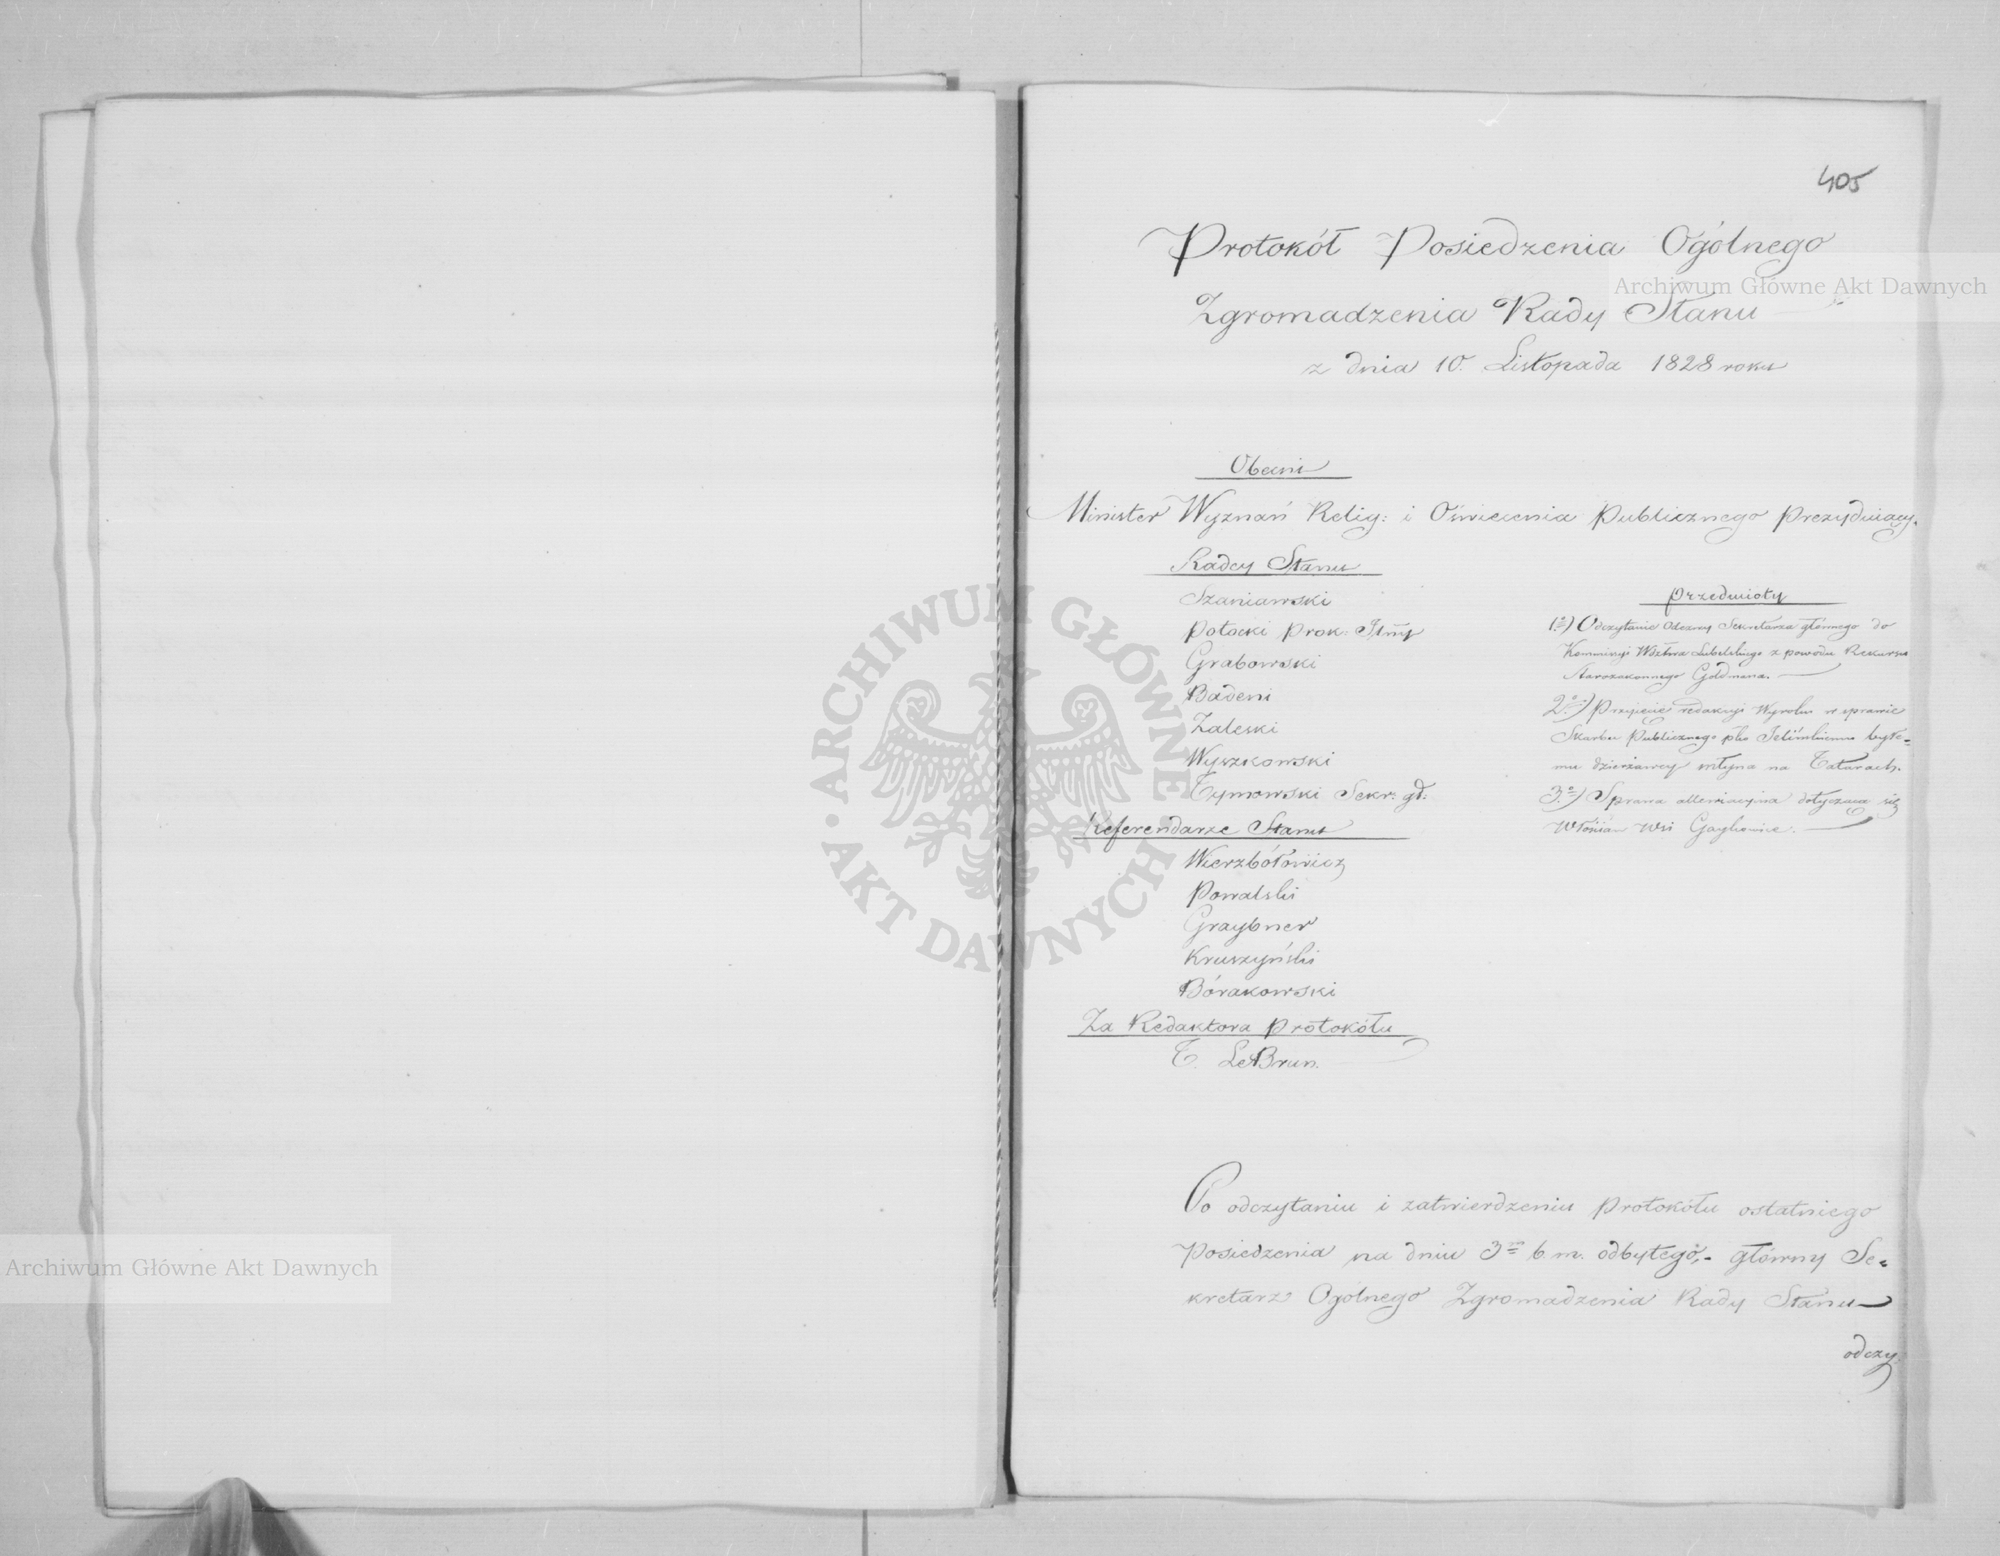 405
Protokół Posiedzenia Ogólnego
Zgromadzenia Rady Stanu
z dnia 10. Listopada 1828 roku
Obecni
Minister Wyznań Relig: i Oświecenia Publicznego Prezydujący.
Radcy Stanu
Szaniawski
Potocki Prok:
Grabowski
Badeni
Zaleski
Wyszkowski
Tymowski Sekr: gł:
Referendarze Stanu
Wierzbółowicz
Powalski
Graybner
Kruszyński
Bórakowski
Za Redaktora Protokółu
T. LeBrun.
Przedmioty
1.o) Odczytanie Odezwy Sekretarza głównego do
Kommissyi Wdztwa Lubelskiego z powodu Rekursu
Starozakonnego Goldmana.
2.o) Przyjęcie redakcyi Wyroku w sprawie
Skarbu Publicznego pko byłe=
mu dzierżawcy młyna na Tatarach.
3.o) Sprawa dotycząca się
Włościan Wsi
Po odczytaniu i zatwierdzeniu Protokółu ostatniego
Posiedzenia na dniu 3m b m. odbytego, główny Se=
kretarz Ogólnego Zgromadzenia Rady Stanu
odczy:
Archiwum Główne Akt Dawnych
Archiwum Główne Akt Dawnych
ARCHIWUM GŁÓWNE · AKT DAWNYCH ·